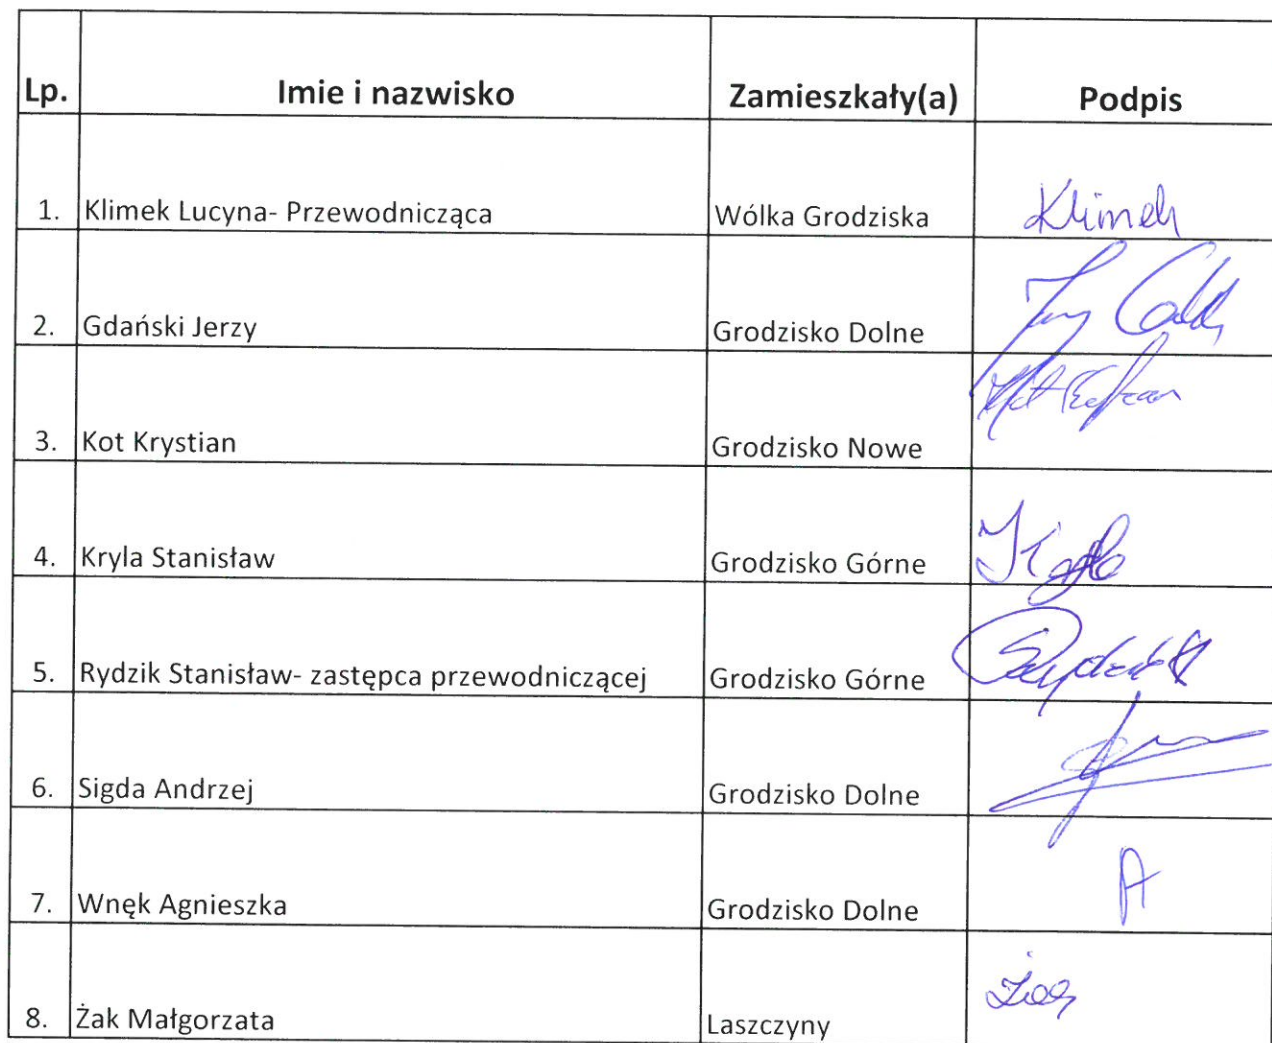 Lp. Imie i nazwisko Zamieszkały(a) Podpis
1. Klimek Lucyna- Przewodnicząca Wólka Grodziska Klimek
2. Gdański Jerzy Grodzisko Dolne
3. Kot Krystian Grodzisko Nowe
4. Kryla Stanisław Grodzisko Górne
5. Rydzik Stanisław- zastępca przewodniczącej Grodzisko Górne
6. Sigda Andrzej Grodzisko Dolne
7. Wnęk Agnieszka Grodzisko Dolne
8. Żak Małgorzata Laszczyny